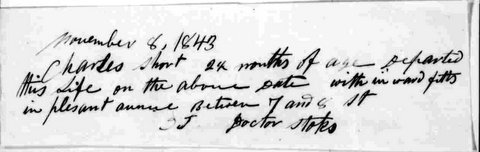 November 8, 1843
Charles short 24 months of age Departed
this Life on the above Date with in ward fitts
in plesant avnue Between 7 and 8 st
Doctor Stoks